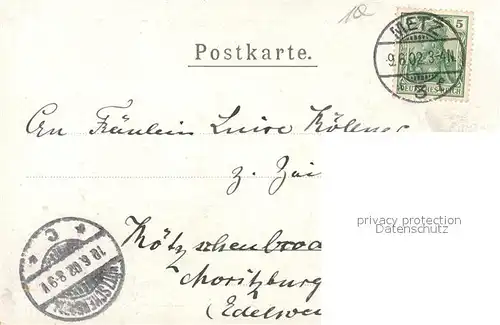 10
METZ
9.6.02.3-4N.
5
DEUTSCHES REICH
Postkarte.
An Fräulein Luise
z. Zai
Kötzschenbroda
Moritzburg
(Edelwei
privacy protection
Datenschutz
C
10.6.02.8-9V.
KÖTZSCHENBRODA